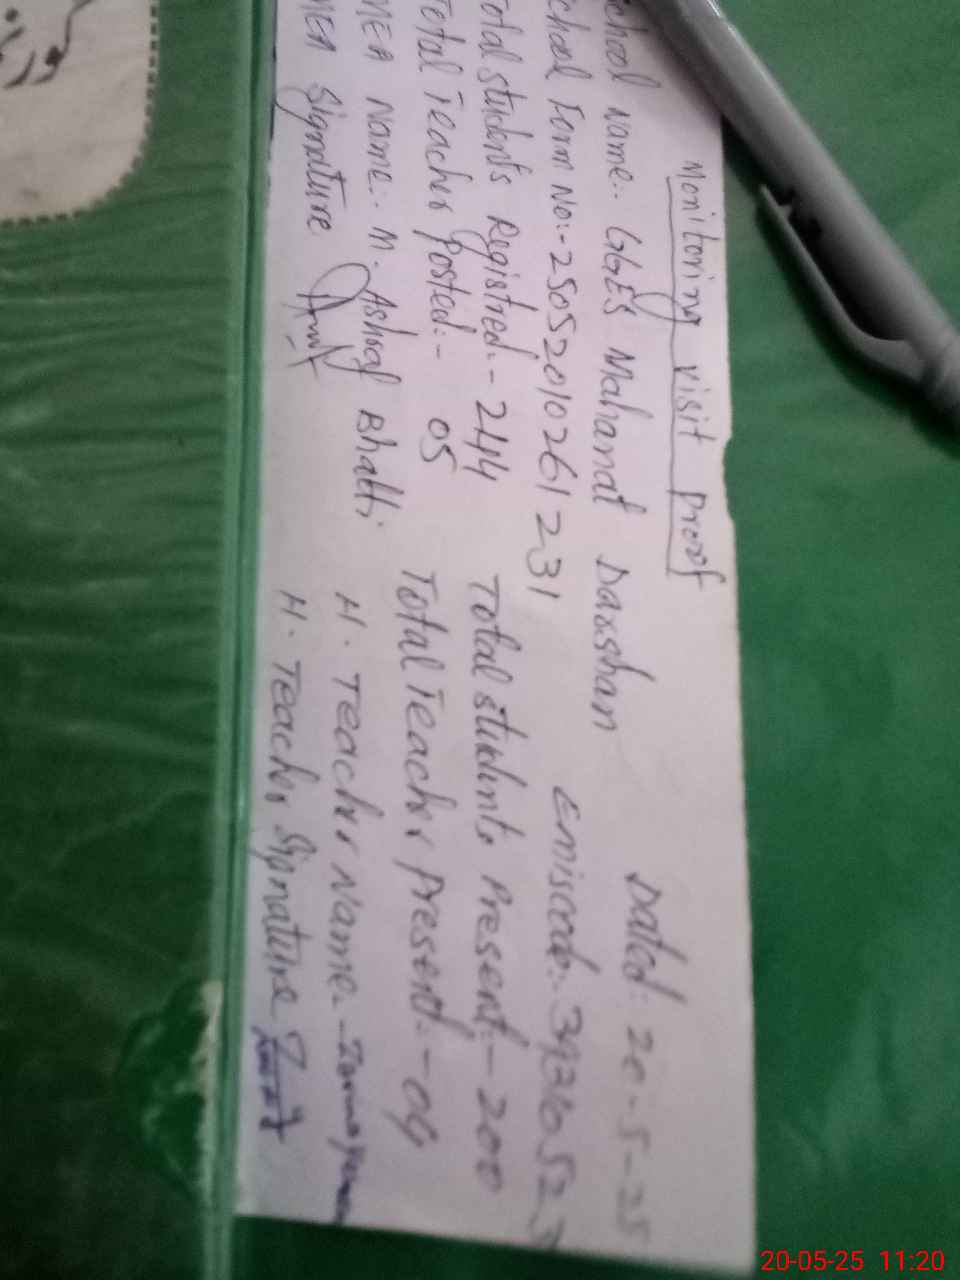 Monitoring visit Proof
Dated: 20-5-25
School Name:. GGES Mahamat Darshan
School Form No:-250520102612 31 Emiscode:. 392605 23
Total Students Registred:-244 Total students Present:-200
Total Teacher Posted:- 05 Total Teacher Present:-04
MEA Name:. M. Ashraf Bhatti H. Teacher Name:-
MEA Signature H. Teacher Signature
20-05-25 11:20